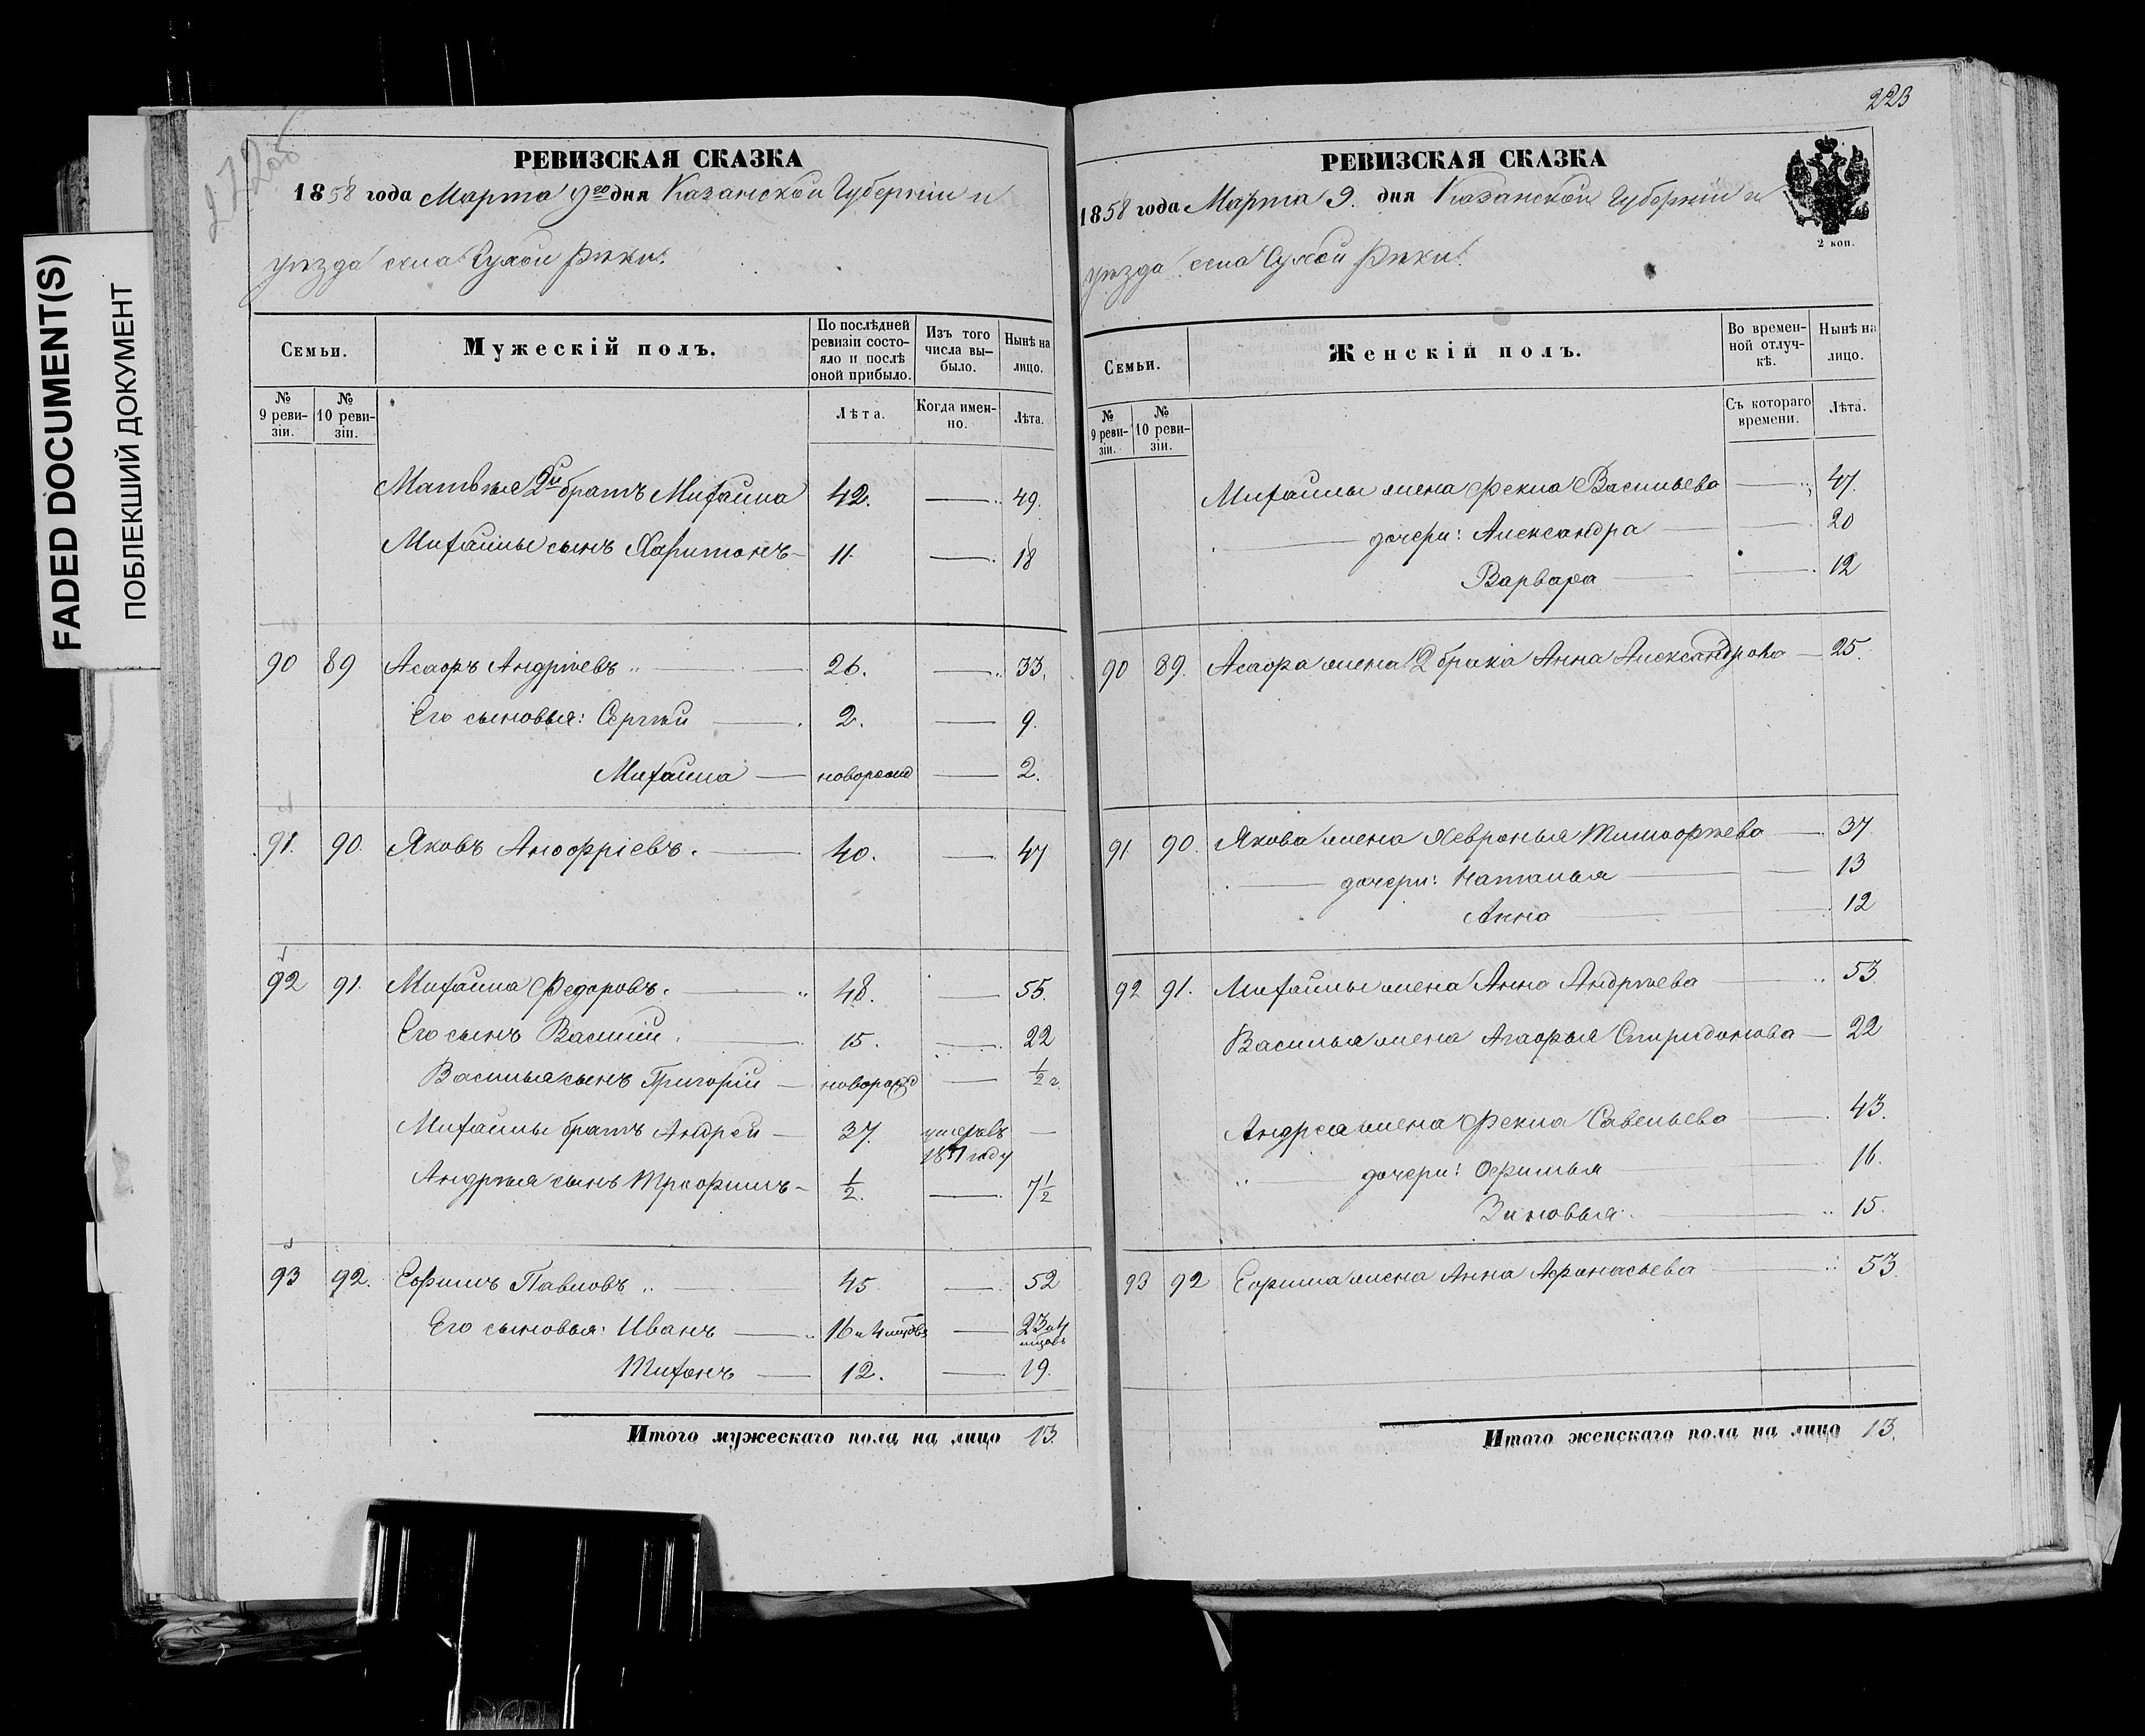 FADED DOCUMENT(S)
ПОБЛЕКШИЙ ДОКУМЕНТ
РЕВИЗСКАЯ СКАЗКА
1858 года Марта 9го дня Казанской Губерніи и
уѣзда села Сухой Рѣки.
Семьи.
Мужескій полъ.
По послѣдней ревизіи состояло и послѣ оной прибыло.
Изъ того числа выбыло.
Нынѣ на лицо.
№ 9 ревизіи.
№ 10 ревизіи.
Лѣта.
Когда именно.
Лѣта.
Матвѣя 2й братъ Михайла 42. — 49.
Михайлы сынъ Харитонъ — 11. — 18
90 89 Асафъ Андрѣевъ — 26. — 33.
Его сыновья: Сергѣй — 2. — 9.
Михайла — новорожд — 2.
91. 90. Яковъ Анофріевъ. — 40. — 47
92 91. Михайла Федоровъ. — 48. — 55.
Его сынъ Василій. — 15. — 22
Василья сынъ Григорій — новорожд — ½ г.
Михайлы братъ Андрей — 37. умеръ въ 1851 году —
Андрѣя сынъ Трофимъ — ½. — 7½
93 92. Ефимъ Павловъ — 45 — 52
Его сыновья: Иванъ — 16 и 4 мцовъ — 23 и 4 мцовъ
Тихонъ — 12. — 19.
Итого мужескаго пола на лицо 13.
223
РЕВИЗСКАЯ СКАЗКА
1858 года Марта 9. дня Казанской Губерніи и
уѣзда села Сухой Рѣки.
2 коп.
Семьи.
Женскій полъ.
Во временной отлучкѣ.
Нынѣ на лицо.
№ 9 ревизіи.
№ 10 ревизіи.
Съ котораго времени.
Лѣта.
Михайлы жена Фекла Васильева — 47.
дочери: Александра — 20
Варвара — 12
90 89. Асафа жена 2 брака Анна Александрова — 25.
91 90. Якова жена Хевронья Тимофѣева — 37
дочери: Наталья — 13
Анна — 12
92 91. Михайлы жена Анна Андрѣева — 53
Василья жена Агафья Спиридонова — 22
Андрея жена Фекла Савельева — 43.
дочери: Офимья — 16.
Зиновья. — 15.
93 92 Ефима жена Анна Афонасьева — 53.
Итого женскаго пола на лицо 13.